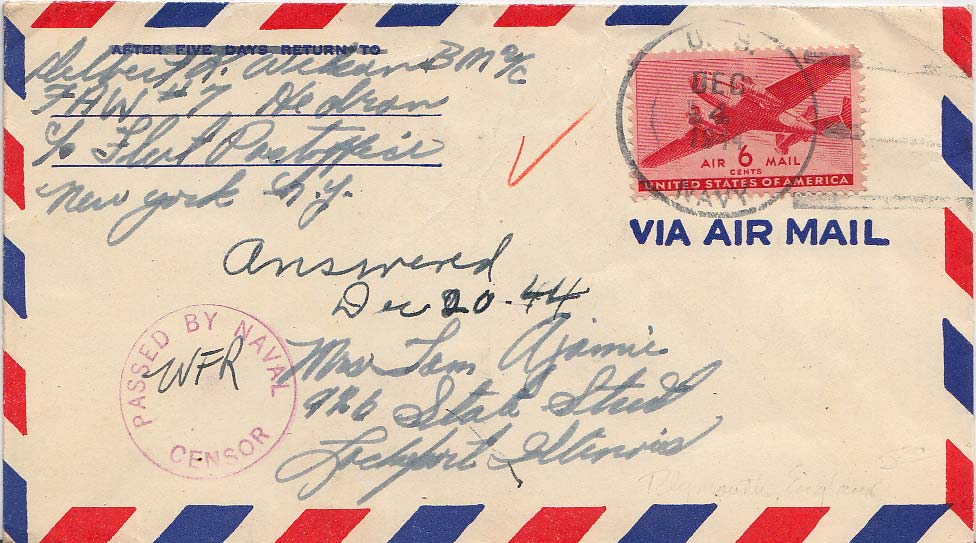 AFTER FIVE DAYS RETURN TO
Delbert R. BM2/c
FAW #7 Hedron
c/o Fleet Postoffice
New York N.Y.
U. S.
DEC
1944
NAVY
AIR 6 MAIL
CENTS
UNITED STATES OF AMERICA
VIA AIR MAIL
Answered
Dec 20-44
PASSED BY NAVAL
CENSOR
WFR
Mrs Tom Ajamie
926 State Street
Lockport Illinois
Plymouth, England